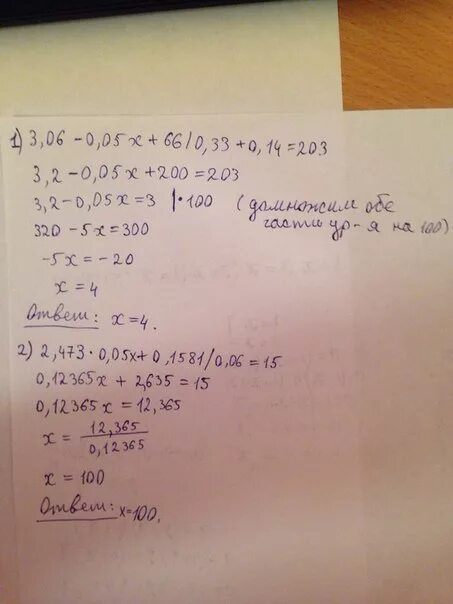 1) 3,06 - 0,05x + 66/0,33 + 0,14 = 203
3,2 - 0,05x + 200 = 203
3,2 - 0,05x = 3 |·100 (домножим обе
части ур-я на 100)
320 - 5x = 300
-5x = -20
x = 4
Ответ: x = 4.
2) 2,473 · 0,05x + 0,1581/0,06 = 15
0,12365x + 2,635 = 15
0,12365x = 12,365
x = 12,365/0,12365
x = 100
Ответ: x = 100.